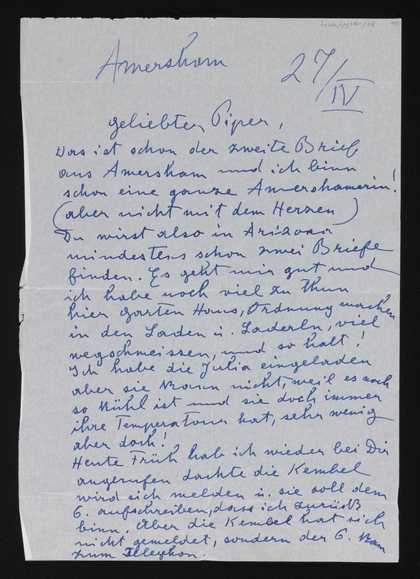 Amersham 27/IV
geliebter Piper,
Das ist schon der zweite Brief
aus Amersham und ich binn
schon eine ganze Amershamerin!
(aber nicht mit dem Herzen)
Du wirst also in Arizona
mindestens schon zwei Briefe
finden. Es geht mir gut und
ich habe noch viel zu thun
hier Garten Haus, Ordnung machen
in den Laden u. Laderln, viel
wegschmeissen, und so halt!
Ich habe die Julia eingeladen
aber sie kann nicht, weil es noch
so kühl ist und sie doch immer
ihre Temperatour hat, sehr wenig
aber doch!
Heute Früh hab ich wieder bei Dir
angerufen dachte die Kembel
wird sich melden u. sie soll dem
G. aufschreiben, dass ich zurück
binn. Aber die Kembel hat sich
nicht gemeldet, sondern der G. kam
zum Telephon.